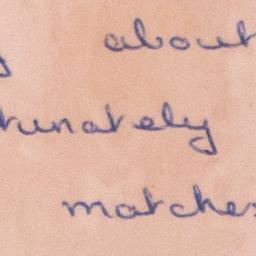 about
tunately
matches